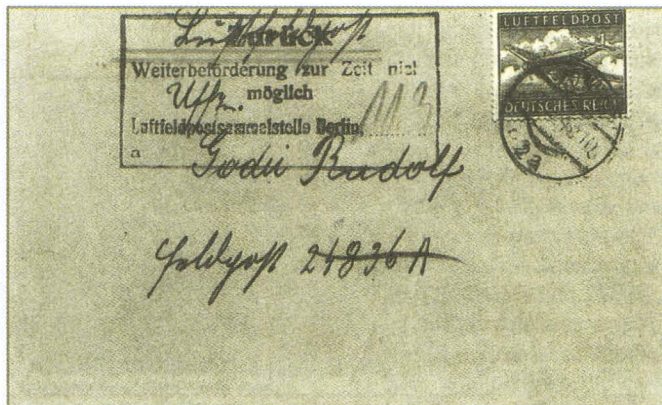 Luftfeldpost
Zurück
Weiterbeförderung zur Zeit nicht
möglich
Uffz.
113
Luftfeldpostsammelstelle Berlin
a
Rudolf
Feldpost 24836 A
LUFTFELDPOST
DEUTSCHES REICH
2a